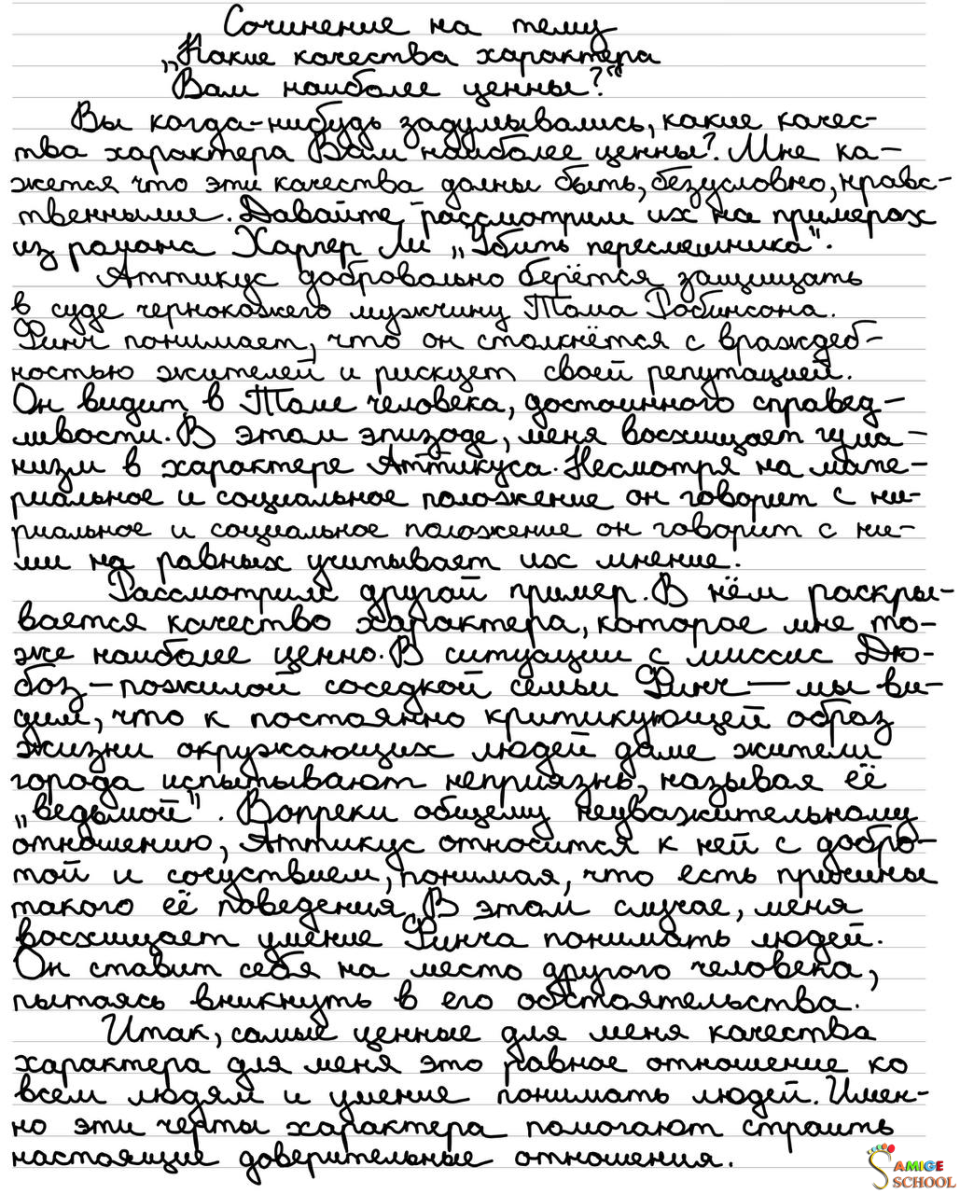 Сочинение на тему
„Какие качества характера
Вам наиболее ценны?“
Вы когда-нибудь задумывались, какие качес-
тва характера Вам наиболее ценны? Мне ка-
жется что эти качества долны быть, безусловно, нравс-
твенными. Давайте рассмотрим их на примерах
из романа Харпер Ли „Убить пересмешника“.
Аттикус добровольно берётся защищать
в суде чернокожего мужчину Тома Робинсона.
Финч понимает, что он столкнётся с враждеб-
ностью жителей и рискует своей репутацией.
Он видит в Томе человека, достоинного справед-
ливости. В этом эпизоде, меня восхищает гума-
низм в характере Аттикуса. Несмотря на мате-
риальное и социальное положение он говорит с ни-
риальное и социальное положение он говорит с ни-
ми на равных учитывает их мнение.
Рассмотрим другой пример. В нём раскры-
вается качество характера, которое мне то-
же наиболее ценно. В ситуации с миссис Дю-
боз – пожилой соседкой семьи Финч — мы ви-
дим, что к постоянно критикующей образ
жизни окружающих людей даме жители
города испытывают неприязнь, называя её
„ведьмой“. Вопреки общему неуважительному
отношению, Аттикус относится к ней с добро-
той и сочуствием, понимая, что есть причины
такого её поведения. В этом случае, меня
восхищает умение Финча понимать людей.
Он ставит себя на место другого человека,
пытаясь вникнуть в его обстоятельства.
Итак, самые ценные для меня качества
характера для меня это равное отношение ко
всем людям и умение понимать людей. Имен-
но эти черты характера помогают строить
настоящие доверительные отношения.
AMIGE
SCHOOL